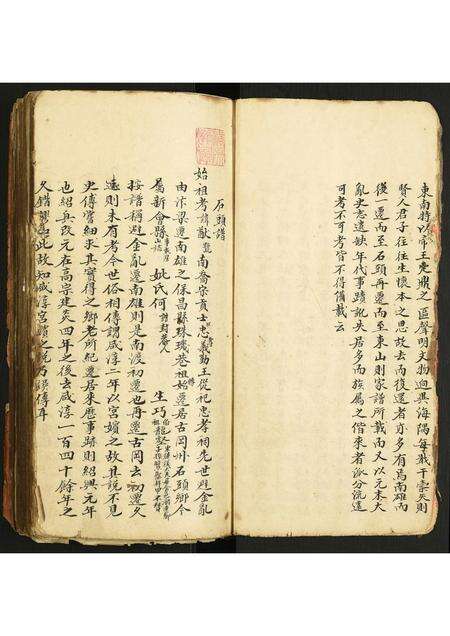 東南特以帝王定鼎之區聲明文物迥與海隅每截干崇矣則
賢人君子往往生懷本之思故去而復還者亦多有焉南雄而
後一遷而至石頭再遷而至東山則家譜所載而又以元末大
亂史志遺缺年代事蹟訛失居多而族屬之偕來者派分流遠
可考不可考皆不得備載云
石頭譜
始祖考諱猷宣南喬宋貢士忠義勤王從祀忠孝祠先世避金亂
由汴梁遷南雄之保昌縣珠璣巷祖始遷居古岡州石頭鄉今
屬新會縣 妣氏何 生巧
按譜稱避金亂遷南雄則是南渡初遷也再遷古岡去初遷久
遠則未有考今世俗相傳謂咸淳二年以宮嬪之故其說不見
史傳嘗細求其實得之鄉老所紀遷居來歷事跡則紹興元年
也紹興改元在高宗建炎四年之後去咸淳一百四十餘年之
久錯謬如此故知咸淳宮嬪之說乃誤傳耳